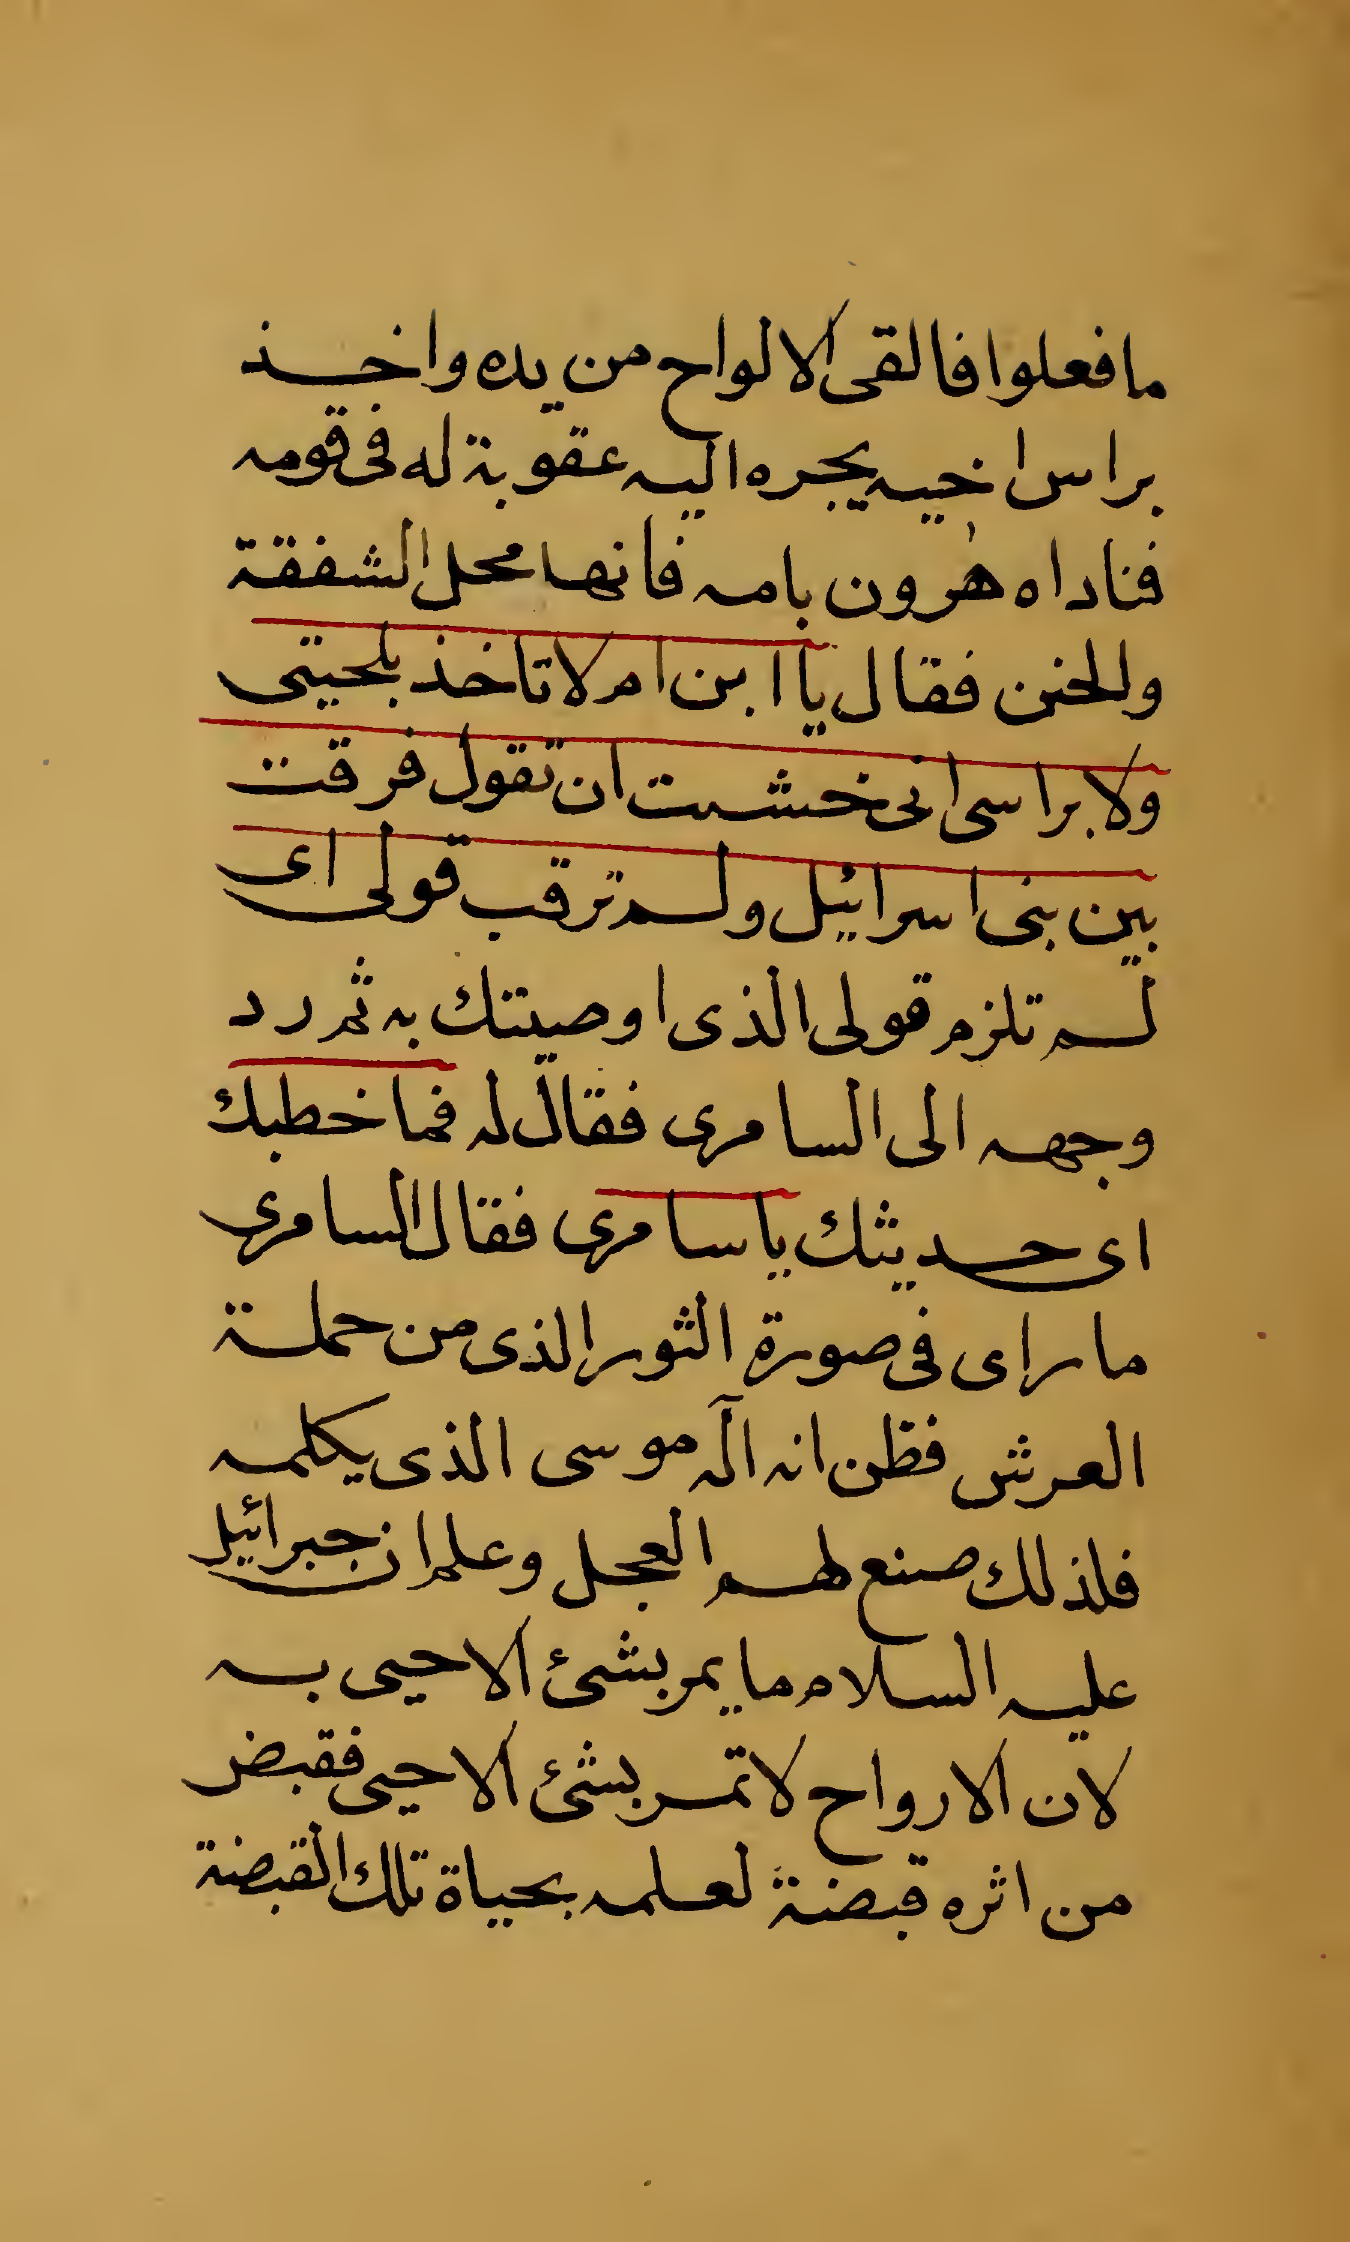 ما فعلوا فالقى الالواح من يده واخذ
براس اخيه يجره اليه عقوبة له فى قومه
فناداه هٰرون بامه فانها محل الشفقة
والحنن فقال يا ابن ام لا تاخذ بلحيتى
ولا براسى انى خشيت ان تقول فرقت
بين بنى اسرائيل ولم ترقب قولى اى
لم تلزم قولى الذى اوصيتك به ثم رد
وجهه الى السامرى فقال له فما خطبك
اى حديثك يا سامرى فقال السامرى
ما راى فى صورة الثور الذى من حملة
العرش فظن انه اله موسى الذى يكلمه
فلذلك صنع لهم العجل وعلم ان جبرائيل
عليه السلام ما يمر بشئ الا حيى به
لان الارواح لا تمر بشئ الا حيى فقبض
من اثره قبضة لعلمه بحياة تلك القبضة